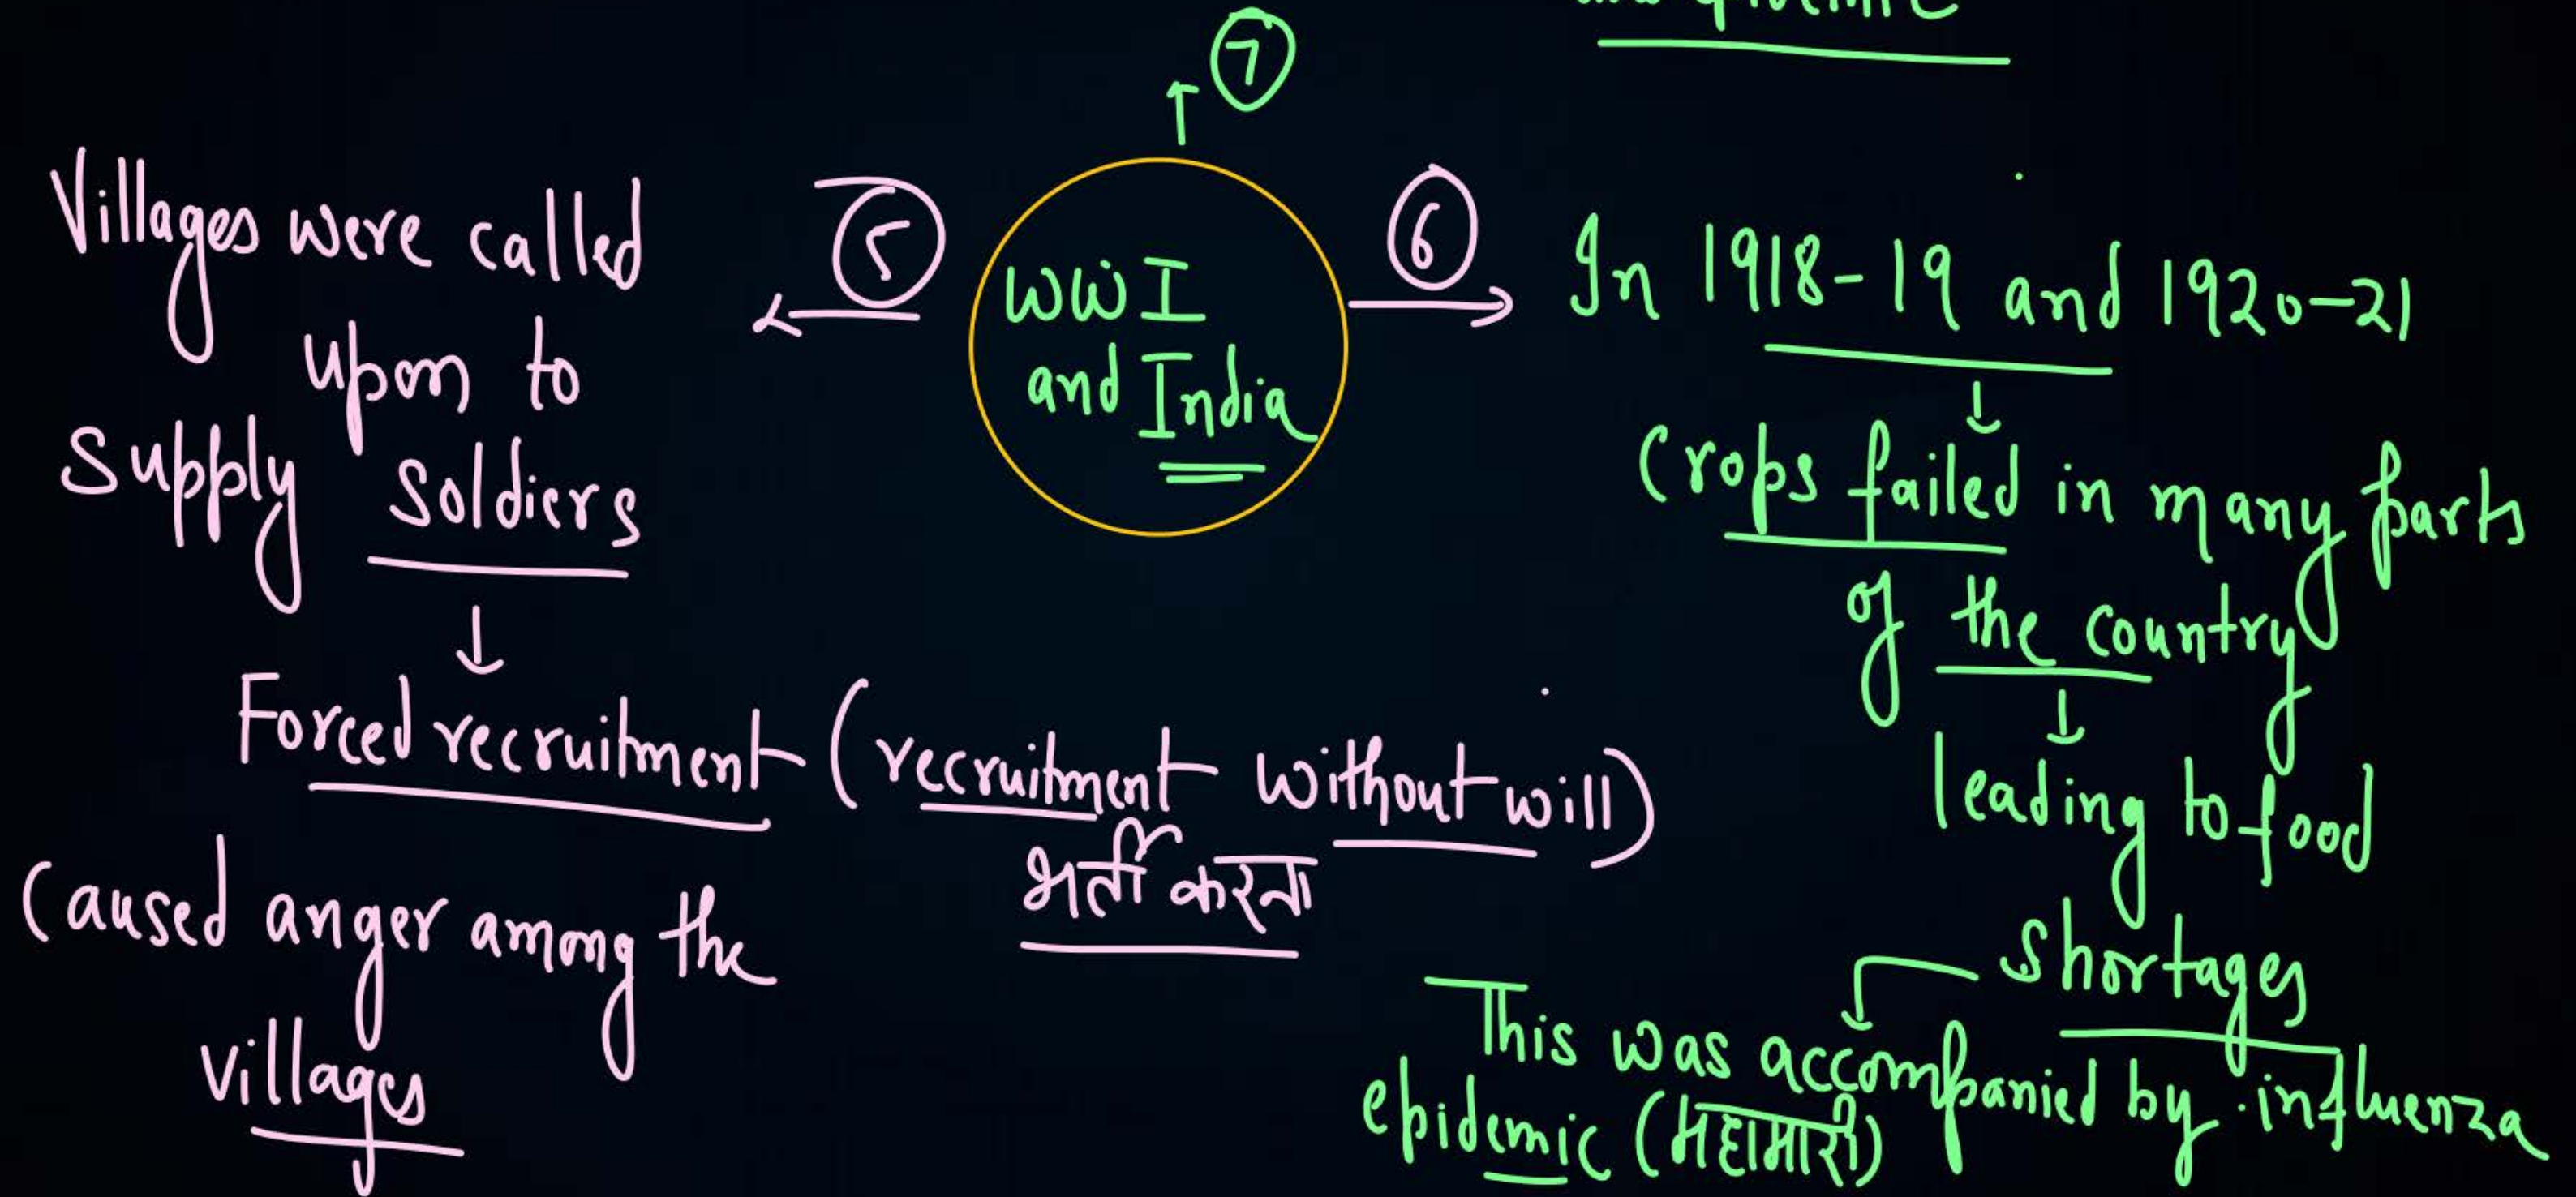 epidemic
7
Villages were called
upon to
supply soldiers
↓
Forced recruitment (recruitment without will)
भर्ती करना
Caused anger among the
villages
5
WWI
and India
6
In 1918-19 and 1920-21
↓
Crops failed in many parts
of the country
↓
leading to food
shortages
This was accompanied by influenza
epidemic (महामारी)